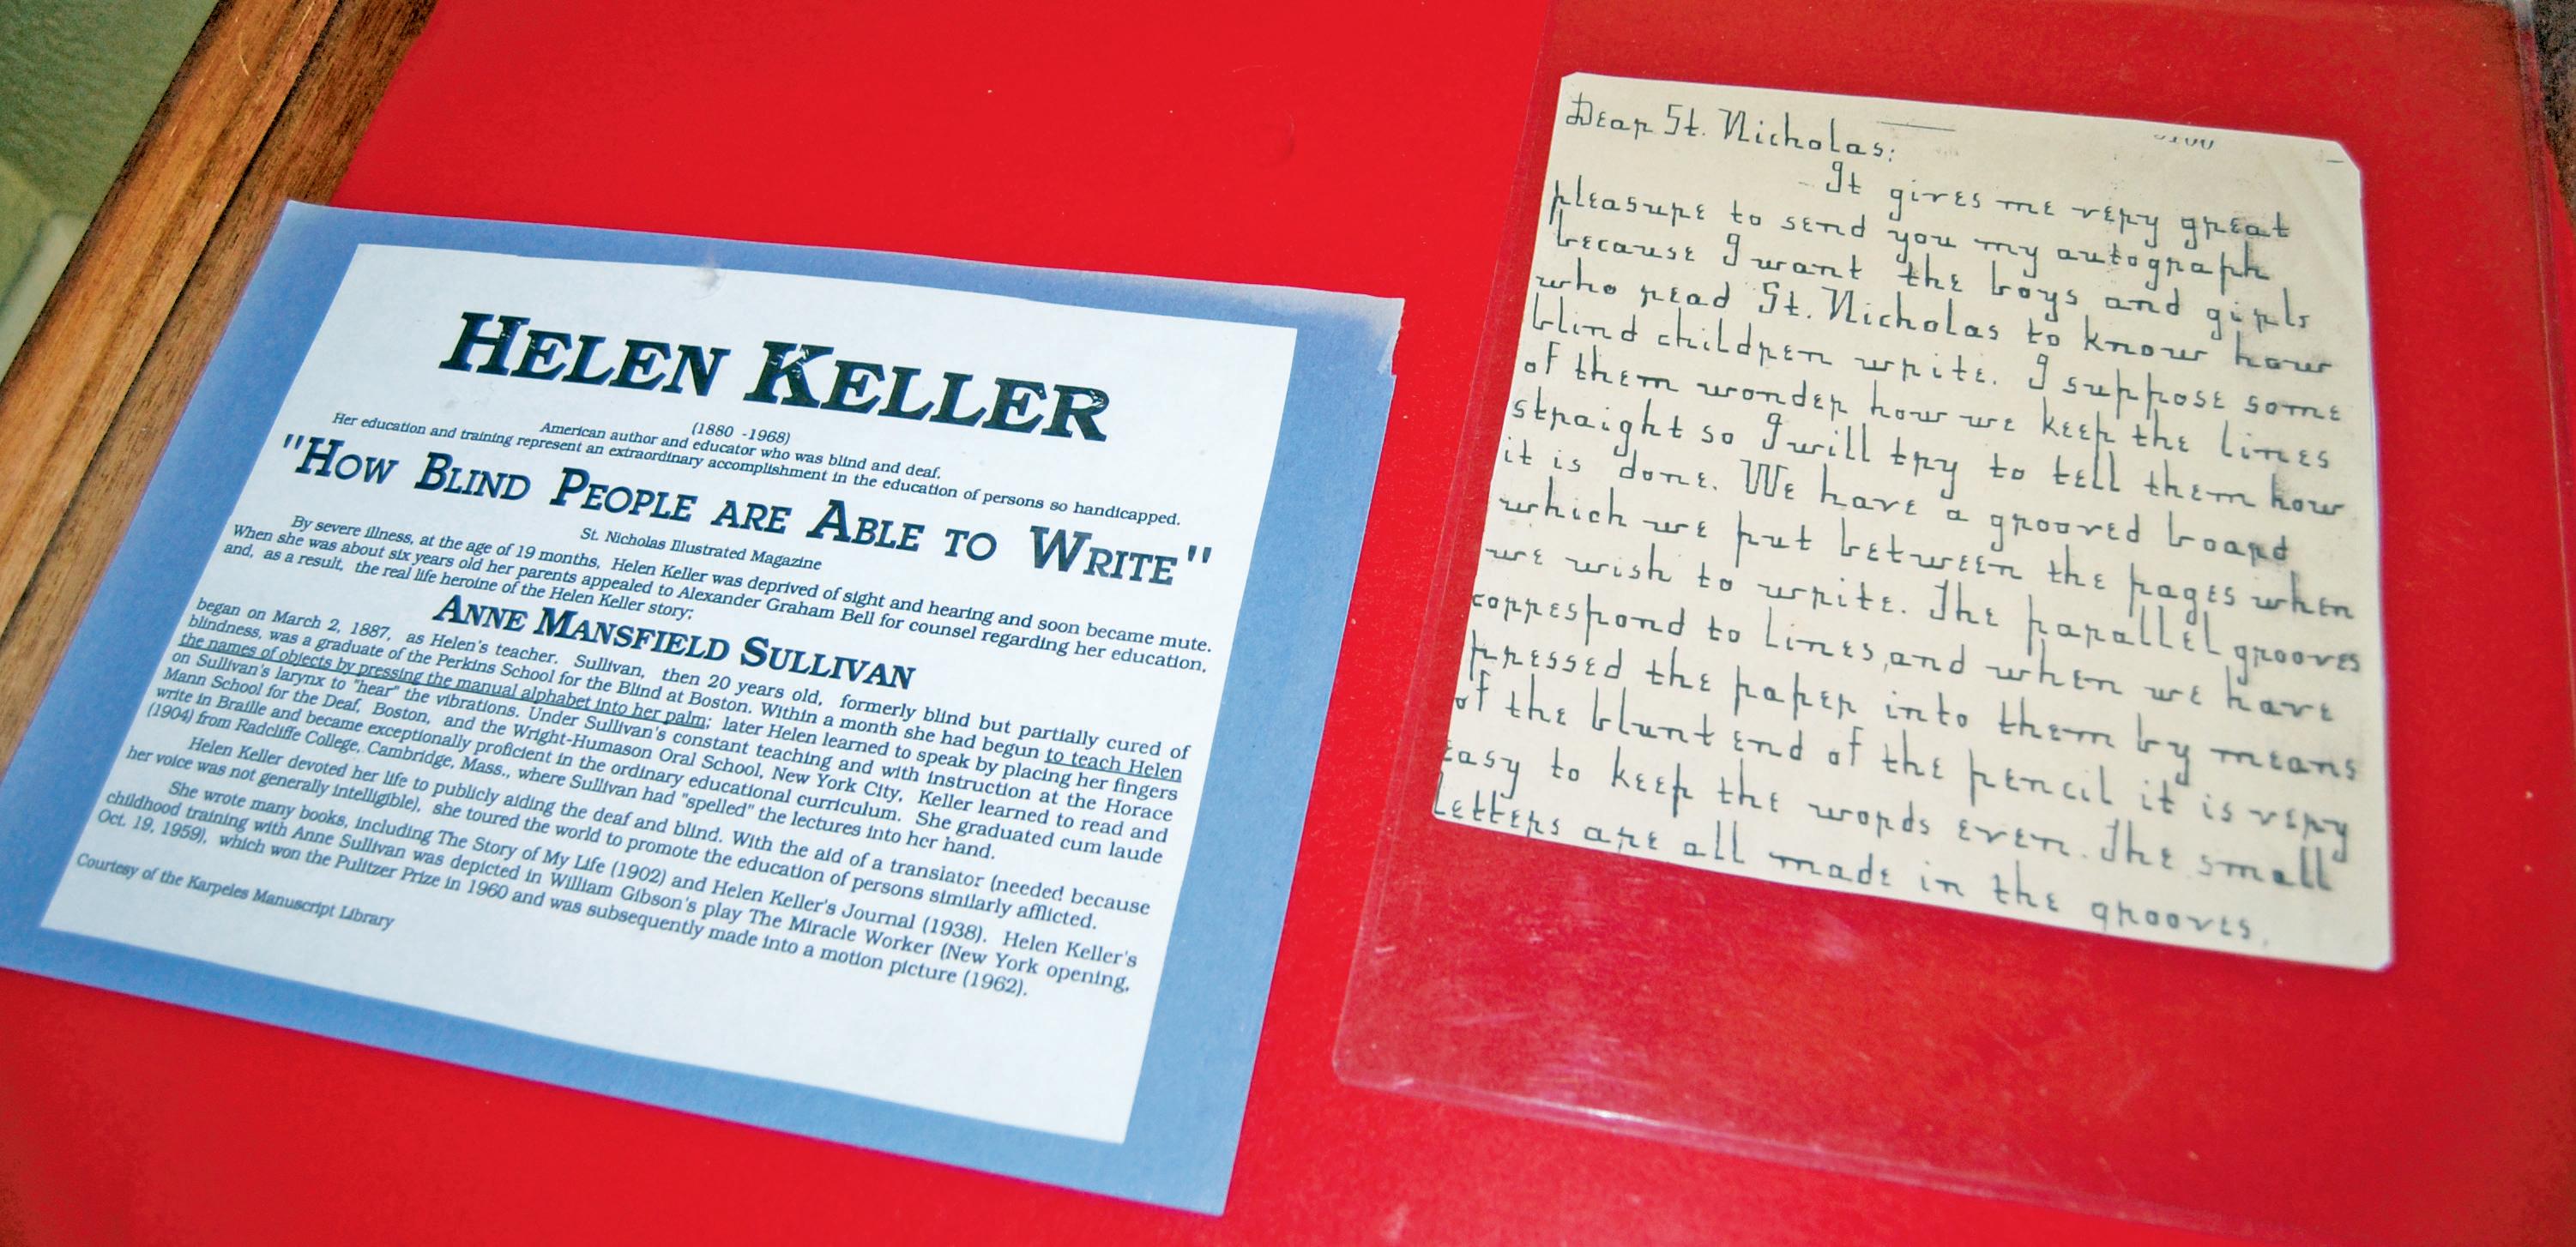 HELEN KELLER
(1880 -1968)
American author and educator who was blind and deaf.
Her education and training represent an extraordinary accomplishment in the education of persons so handicapped.
"HOW BLIND PEOPLE ARE ABLE TO WRITE"
St. Nicholas Illustrated Magazine
By severe illness, at the age of 19 months, Helen Keller was deprived of sight and hearing and soon became mute.
When she was about six years old her parents appealed to Alexander Graham Bell for counsel regarding her education,
and, as a result, the real life heroine of the Helen Keller story;
ANNE MANSFIELD SULLIVAN
began on March 2, 1887, as Helen's teacher. Sullivan, then 20 years old, formerly blind but partially cured of
blindness, was a graduate of the Perkins School for the Blind at Boston. Within a month she had begun to teach Helen
the names of objects by pressing the manual alphabet into her palm; later Helen learned to speak by placing her fingers
on Sullivan's larynx to "hear" the vibrations. Under Sullivan's constant teaching and with instruction at the Horace
Mann School for the Deaf, Boston, and the Wright-Humason Oral School, New York City, Keller learned to read and
write in Braille and became exceptionally proficient in the ordinary educational curriculum. She graduated cum laude
(1904) from Radcliffe College, Cambridge, Mass., where Sullivan had "spelled" the lectures into her hand.
Helen Keller devoted her life to publicly aiding the deaf and blind. With the aid of a translator (needed because
her voice was not generally intelligible), she toured the world to promote the education of persons similarly afflicted.
She wrote many books, including The Story of My Life (1902) and Helen Keller's Journal (1938). Helen Keller's
childhood training with Anne Sullivan was depicted in William Gibson's play The Miracle Worker (New York opening,
Oct. 19, 1959), which won the Pulitzer Prize in 1960 and was subsequently made into a motion picture (1962).
Courtesy of the Karpeles Manuscript Library
Dear St. Nicholas:
It gives me very great
pleasure to send you my autograph
because I want the boys and girls
who read St. Nicholas to know how
blind children write. I suppose some
of them wonder how we keep the lines
straight so I will try to tell them how
it is done. We have a grooved board
which we put between the pages when
we wish to write. The parallel grooves
correspond to lines, and when we have
pressed the paper into them by means
of the blunt end of the pencil it is very
easy to keep the words even. The small
letters are all made in the grooves,